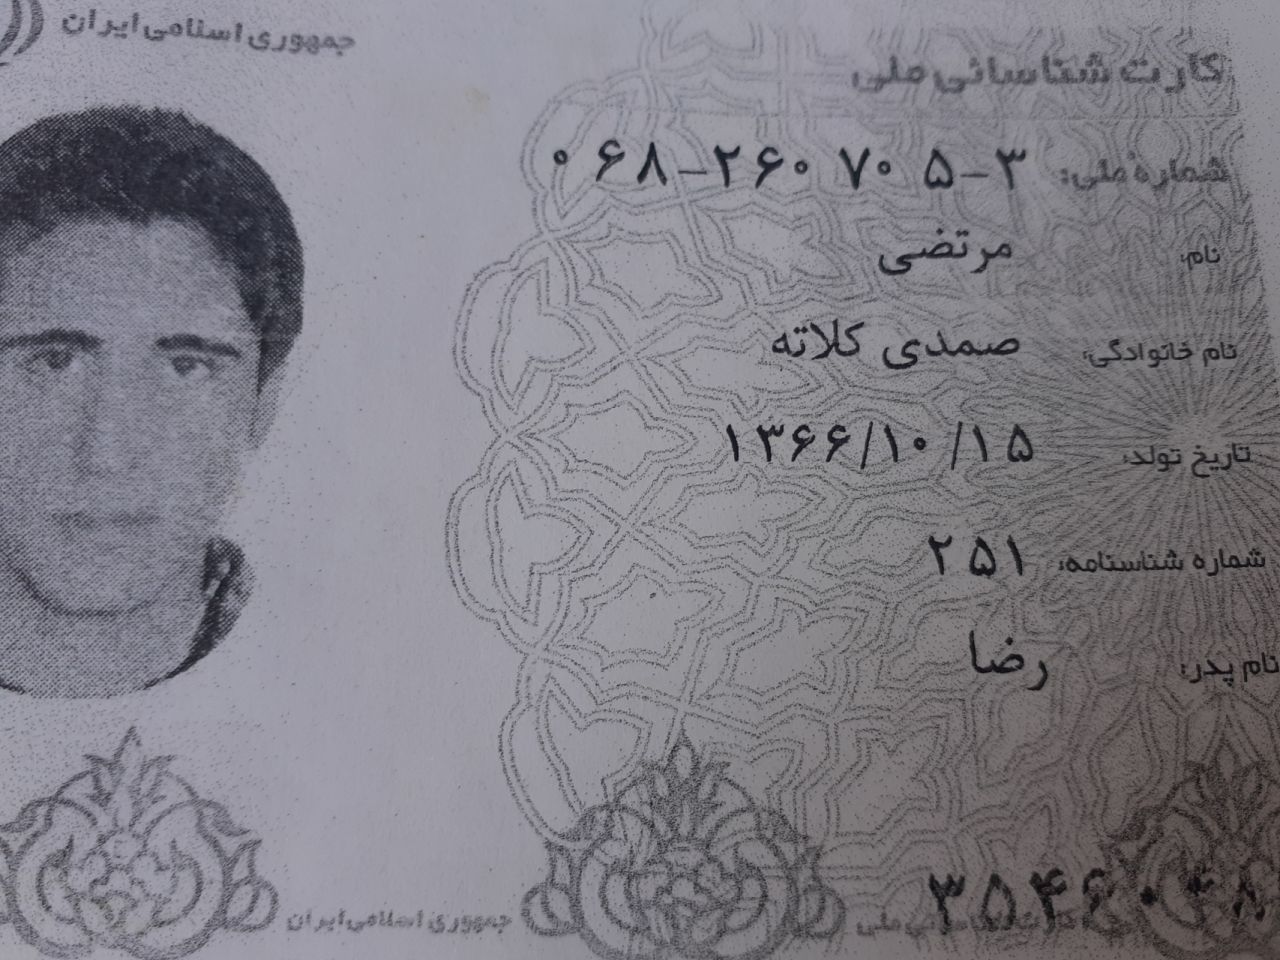 جمهوری اسلامی ایران
کارت شناسائی ملی
شماره ملی: ۰۶۸-۲۶۰۷۰۵-۳
نام: مرتضی
نام خانوادگی: صمدی کلاته
تاریخ تولد: ۱۳۶۶/۱۰/۱۵
شماره شناسنامه: ۲۵۱
نام پدر: رضا
جمهوری اسلامی ایران